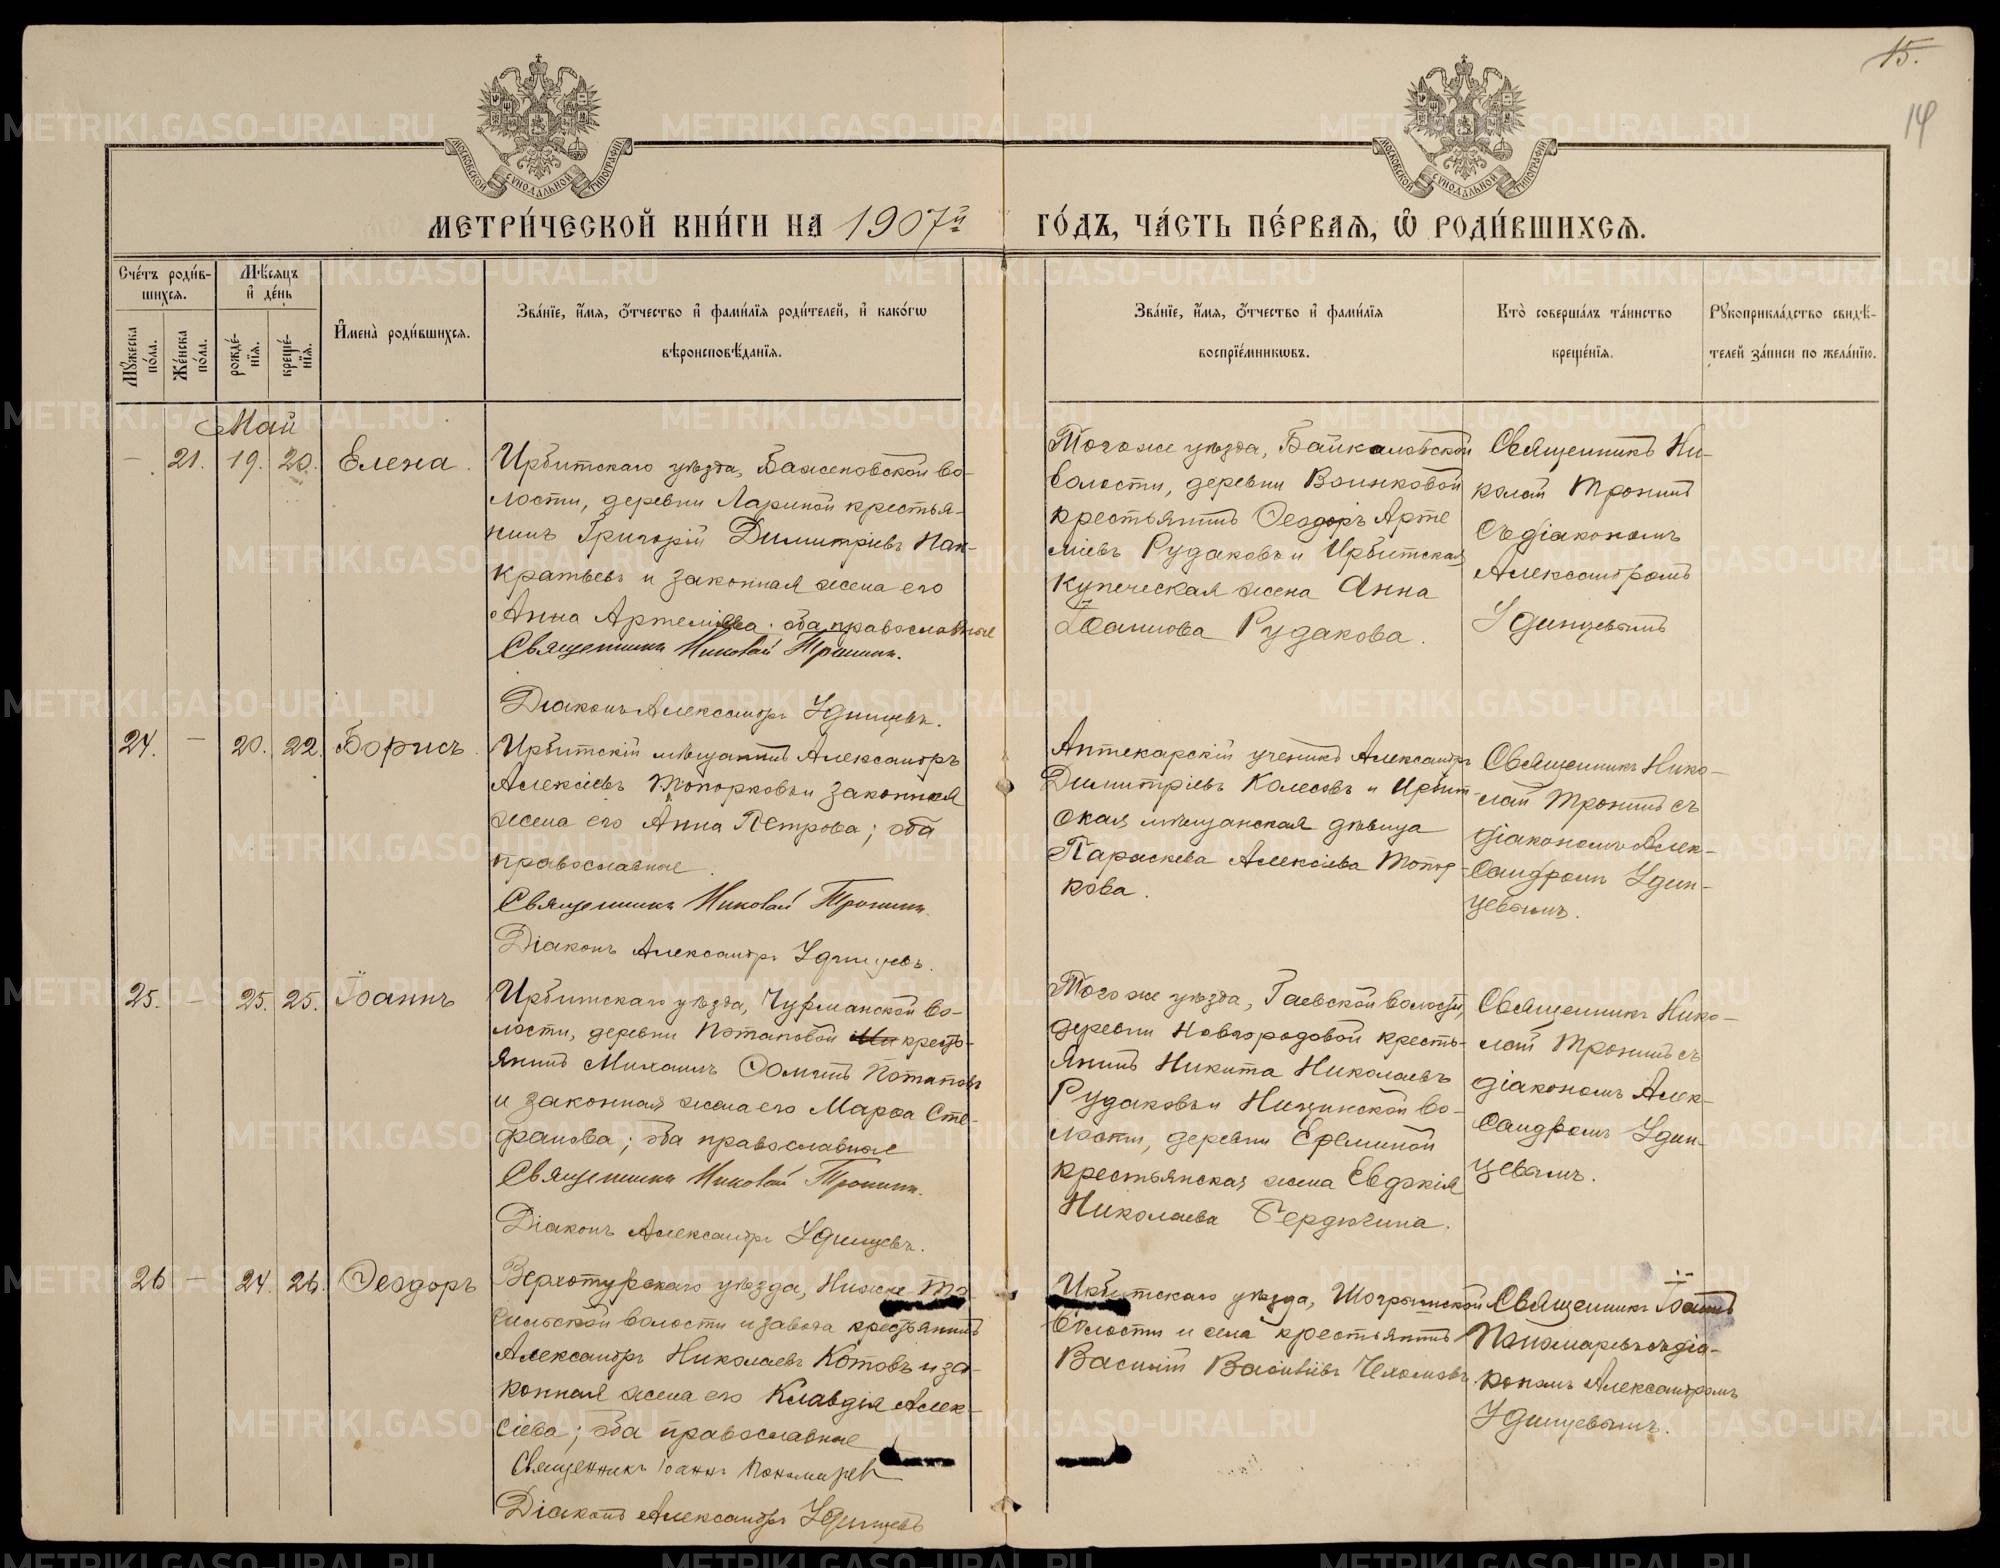 15.
14
МОСКОВСКОЙ СѴНОДАЛЬНОЙ ТИПОГРАФІИ
МОСКОВСКОЙ СѴНОДАЛЬНОЙ ТИПОГРАФІИ
МЕТРИ́ЧЕСКОЙ КНИ́ГИ НА 1907й
ГО́ДЪ, ЧА́СТЬ ПЕ́РВАѦ, Ѡ҆ РОДИ́ВШИХСѦ.
Сче́тъ роди́в-
шихсѧ.
Мѣ́сѧцъ
и҆ де́нь
Мꙋ́жеска по́ла.
Же́нска по́ла.
рожде́-
нїѧ.
креще́-
нїѧ.
И҆мена̀ роди́вшихсѧ.
Зва́нїе, и҆́мѧ, ѻ҆́тчество и҆ фами́лїѧ роди́телей, и҆ како́гѡ
вѣроисповѣ́данїѧ.
Зва́нїе, и҆́мѧ, ѻ҆́тчество и҆ фами́лїѧ
воспрїе́мникѡвъ.
Кто̀ соверша́лъ та́инство
креще́нїѧ.
Рꙋкоприкла́дство свидѣ́-
телей за́писи по жела́нїю.
Май
— 21. 19. 20. Елена.
Ирбитскаго уѣзда, Баженовской во-
лости, деревни Лариной крестья-
нинъ Григорій Димитріевъ Пан-
кратьевъ и законная жена его
Анна Артеміева. оба православные
Священникъ Николай Тронинъ.
Діаконъ Александръ Удинцевъ.
Того же уѣзда, Байкаловской
волости, деревни Воинковой
крестьянинъ Ѳеодоръ Арте
міевъ Рудаковъ и Ирбитская
купеческая жена Анна
Іоаннова Рудакова.
Священникъ Ни-
колай Тронинъ
съ діакономъ
Александромъ
Удинцевымъ
24. — 20. 22. Борисъ.
Ирбитскій мѣщанинъ Александръ
Алексіевъ Топорковъ и законная
жена его Анна Петрова; оба
православные.
Священникъ Николай Тронинъ.
Діаконъ Александръ Удинцевъ.
Аптекарскій ученикъ Александръ
Димитріевъ Колесовъ и Ирбит-
ская мѣщанская дѣвица
Параскева Алексіева Топор-
кова.
Священникъ Нико-
лай Тронинъ съ
діакономъ Алек-
сандромъ Удин-
цевымъ.
25. — 25. 25. Іоаннъ
Ирбитскаго уѣзда, Чурманской во-
лости, деревни Потаповой Ми кресть-
янинъ Михаилъ Ѳоминъ Потаповъ
и законная жена его Марѳа Сте-
фанова; оба православные
Священникъ Николай Тронинъ.
Діаконъ Александръ Удинцевъ.
Того же уѣзда, Гаевской волости,
деревни Новгородовой кресть-
янинъ Никита Николаевъ
Рудаковъ и Ницинской во-
лости, деревни Ереминой
крестьянская жена Евдокія
Николаева Бердюгина.
Священникъ Нико-
лай Тронинъ съ
діакономъ Алек-
сандромъ Удин-
цевымъ.
26 — 24. 26. Ѳеодоръ
Верхотурскаго уѣзда, Нижне Та-
гильской волости и завода крестьянинъ
Александръ Николаевъ Котовъ и за-
конная жена его Клавдія Алек-
сіева; оба православные
Священникъ Іоаннъ Пономаревъ
Діаконъ Александръ Удинцевъ
Ирбитскаго уѣзда, Шогринской
волости и села крестьянинъ
Василій Васильевъ
Священникъ Іоаннъ
Пономаревъ съ діа-
кономъ Александромъ
Удинцевымъ.
METRIKI.GASO-URAL.RU